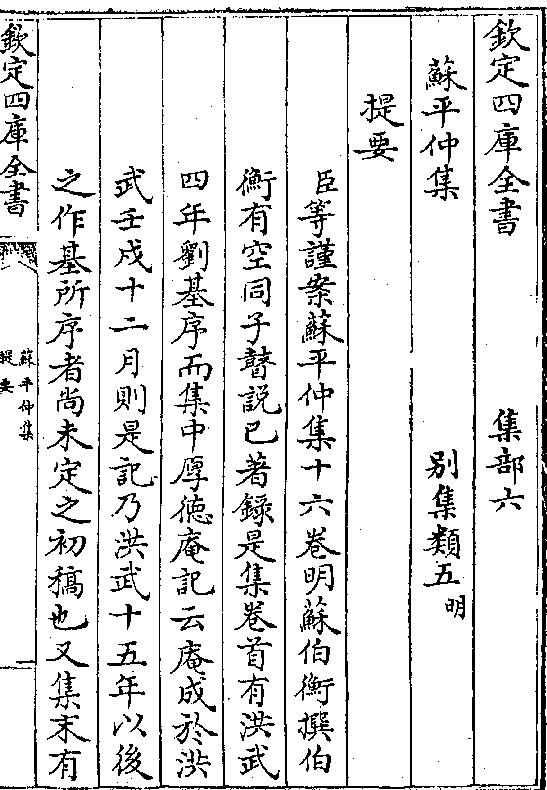 欽定四庫全書　集部六
蘇平仲集　别集類五明
提要
臣等謹案蘇平仲集十六卷明蘇伯衡撰伯
衡有空同子瞽説已著録是集卷首有洪武
四年劉基序而集中厚徳庵記云庵成於洪
武壬戌十二月則是記乃洪武十五年以後
之作基所序者尚未定之初稿也又集末有
欽定四庫全書
蘇平仲集
提要
一